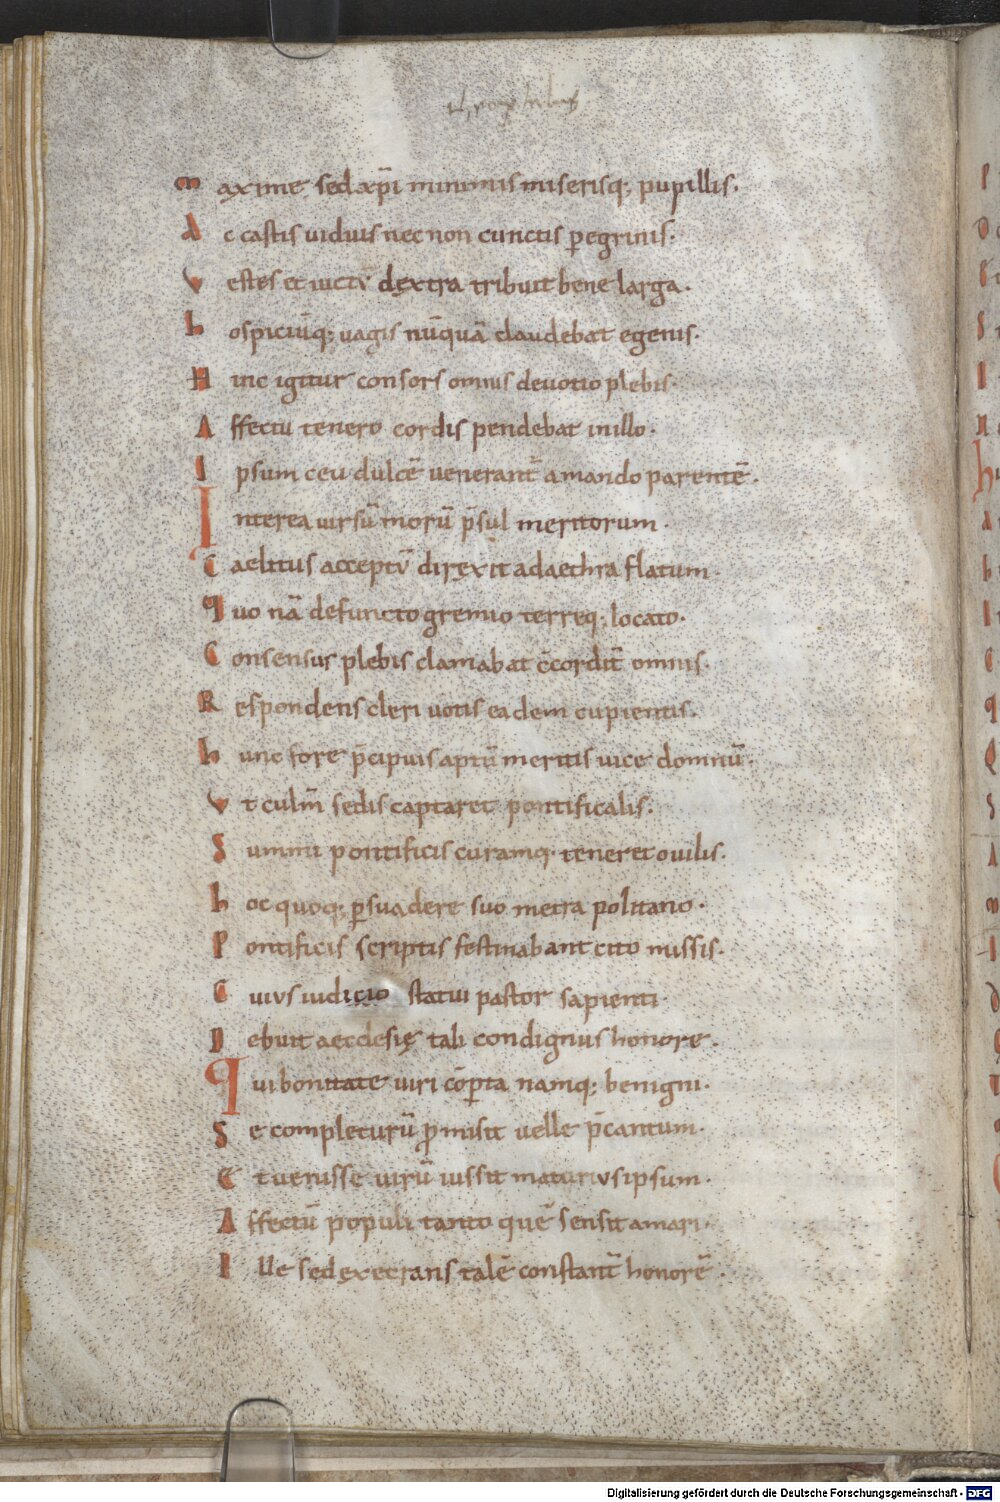 Maxime sed xp̄i minimis miserisq; pupillis.
Ac castis uiduis nec non cunctis ꝑegrinis.
Vestes et uictū dextra tribuit bene larga.
hospiciūq; uagis nūquā claudebat egenis.
Hinc igitur consors omnis deuotio plebis.
Affectu tenero cordis pendebat in illo.
Ipsum ceu dulcē uenerant̄ amando parentē.
Interea uirsū morū p̄sul meritorum.
Caelitus acceptū direxit ad aethra flatum.
Quo nā defuncto gremio terreq; locato.
Consensus plebis clamabat c̄cordit̄ omnis.
Respondens cleri uotis eadem cupientis.
hunc fore p̄cipuis aptū meritis uice domnū.
Vt culm̄ sedis captaret pontificalis.
Summi pontificis curamq. teneret ouilis.
hoc quoq; ꝑsuadere suo metra politano.
Pontificis scriptis festinabant cito missis.
Cuius iudicio statui pastor sapienti.
Debuit aecclesię tali condignus honore.
Qui bonitate uiri cōꝑta namq; benigni.
Se completurū ꝓmisit uelle p̄cantum.
Et uenisse uirū iussit maturius ipsum.
Affectū populi tanto quē sensit amari.
Ille sed exęcrans talē constant̄ honorē.
Digitalisierung gefördert durch die Deutsche Forschungsgemeinschaft - DFG